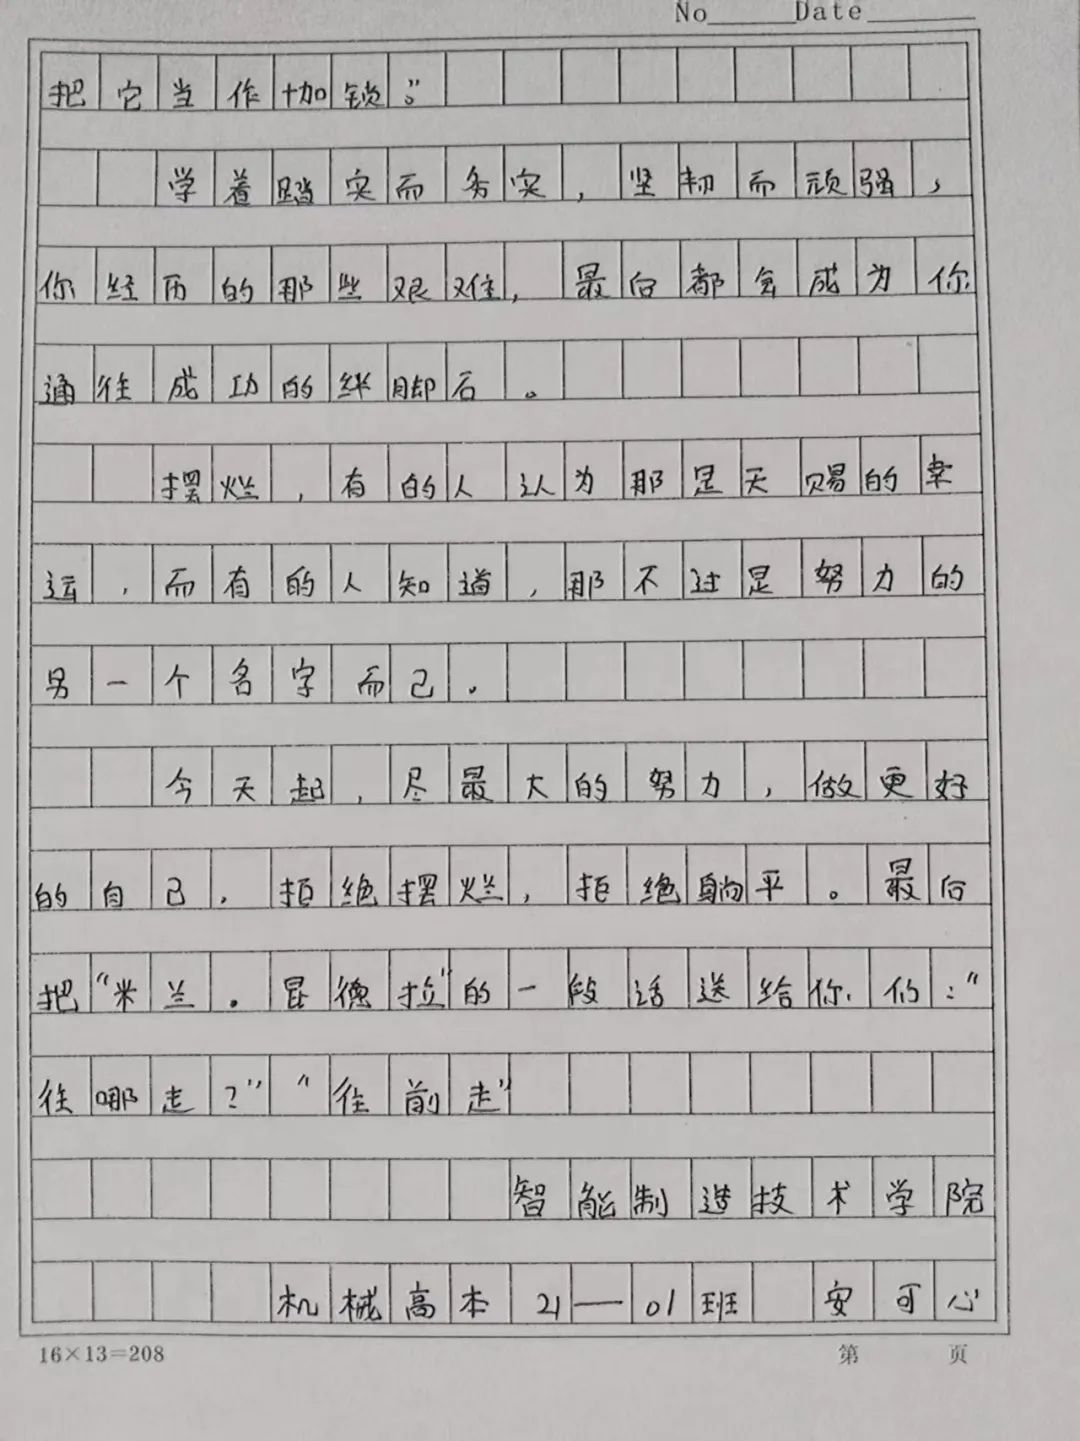 No Date
把它当作枷锁。”
学着踏实而务实，坚韧而顽强，
你经历的那些艰难，最后都会成为你
通往成功的绊脚石。
摆烂，有的人认为那是天赐的幸
运，而有的人知道，那不过是努力的
另一个名字而已.
今天起，尽最大的努力，做更好
的自己. 拒绝摆烂，拒绝躺平。最后
把“米兰.昆德拉”的一段话送给你们：“
往哪走？”“往前走”
智能制造技术学院
机械高本21—01班 安可心
16×13=208 第 页